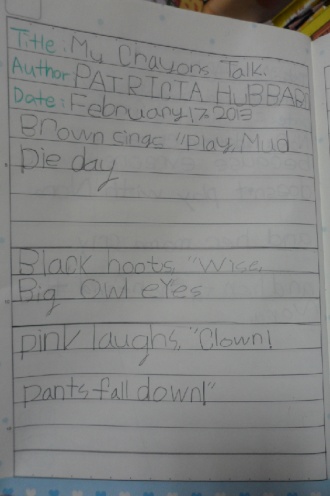 Title: My Crayons Talk.
Author PATRICIA HUBBARD
Date: February, 17, 2013
Brown sings "Play, Mud
Pie day
Black hoots "Wise,
Big Owl eyes
pink laughs, "Clown!
pants fall down!"